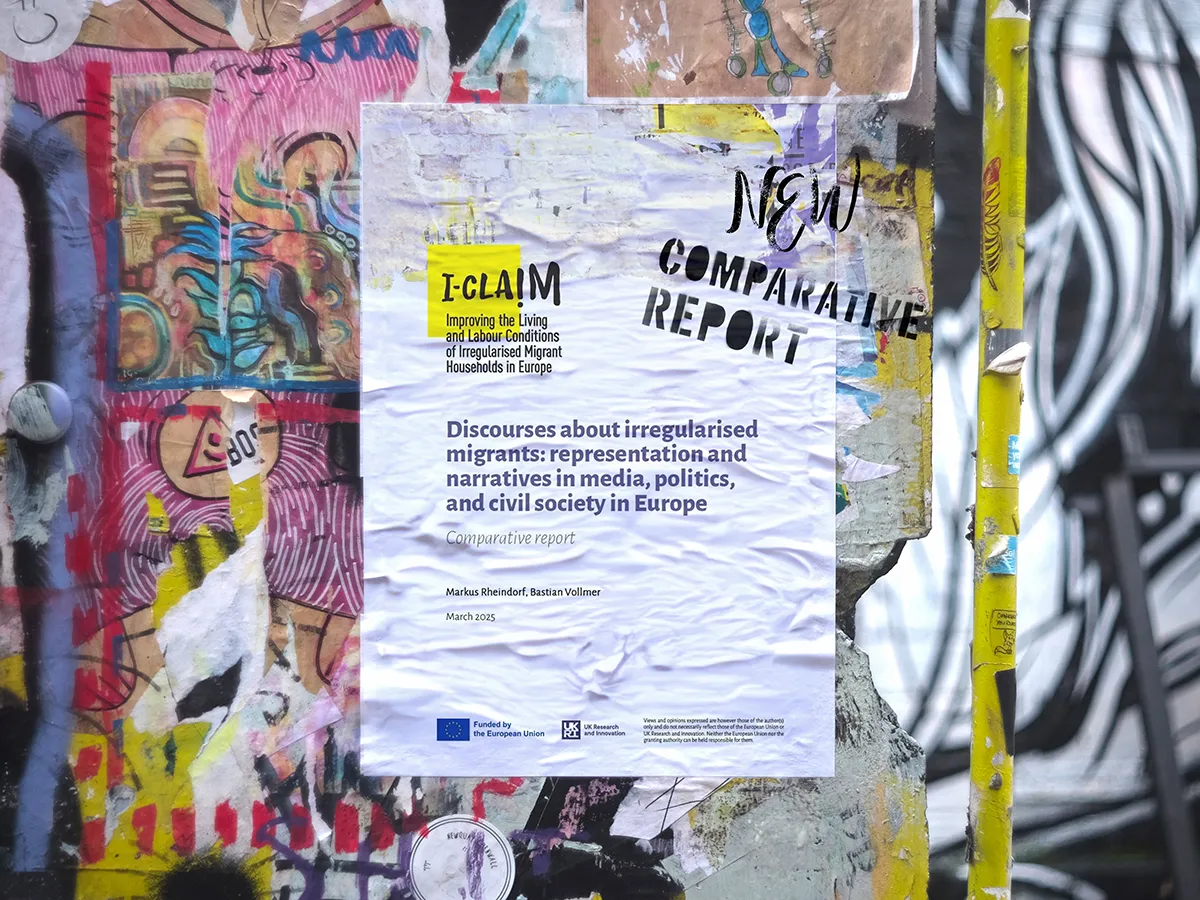 NEW
COMPARATIVE
REPORT
I-CLA!M
Improving the Living
and Labour Conditions
of Irregularised Migrant
Households in Europe
Discourses about irregularised
migrants: representation and
narratives in media, politics,
and civil society in Europe
Comparative report
Markus Rheindorf, Bastian Vollmer
March 2025
Funded by
the European Union
UK Research
and Innovation
Views and opinions expressed are however those of the author(s)
only and do not necessarily reflect those of the European Union or
UK Research and Innovation. Neither the European Union nor the
granting authority can be held responsible for them.
BOS